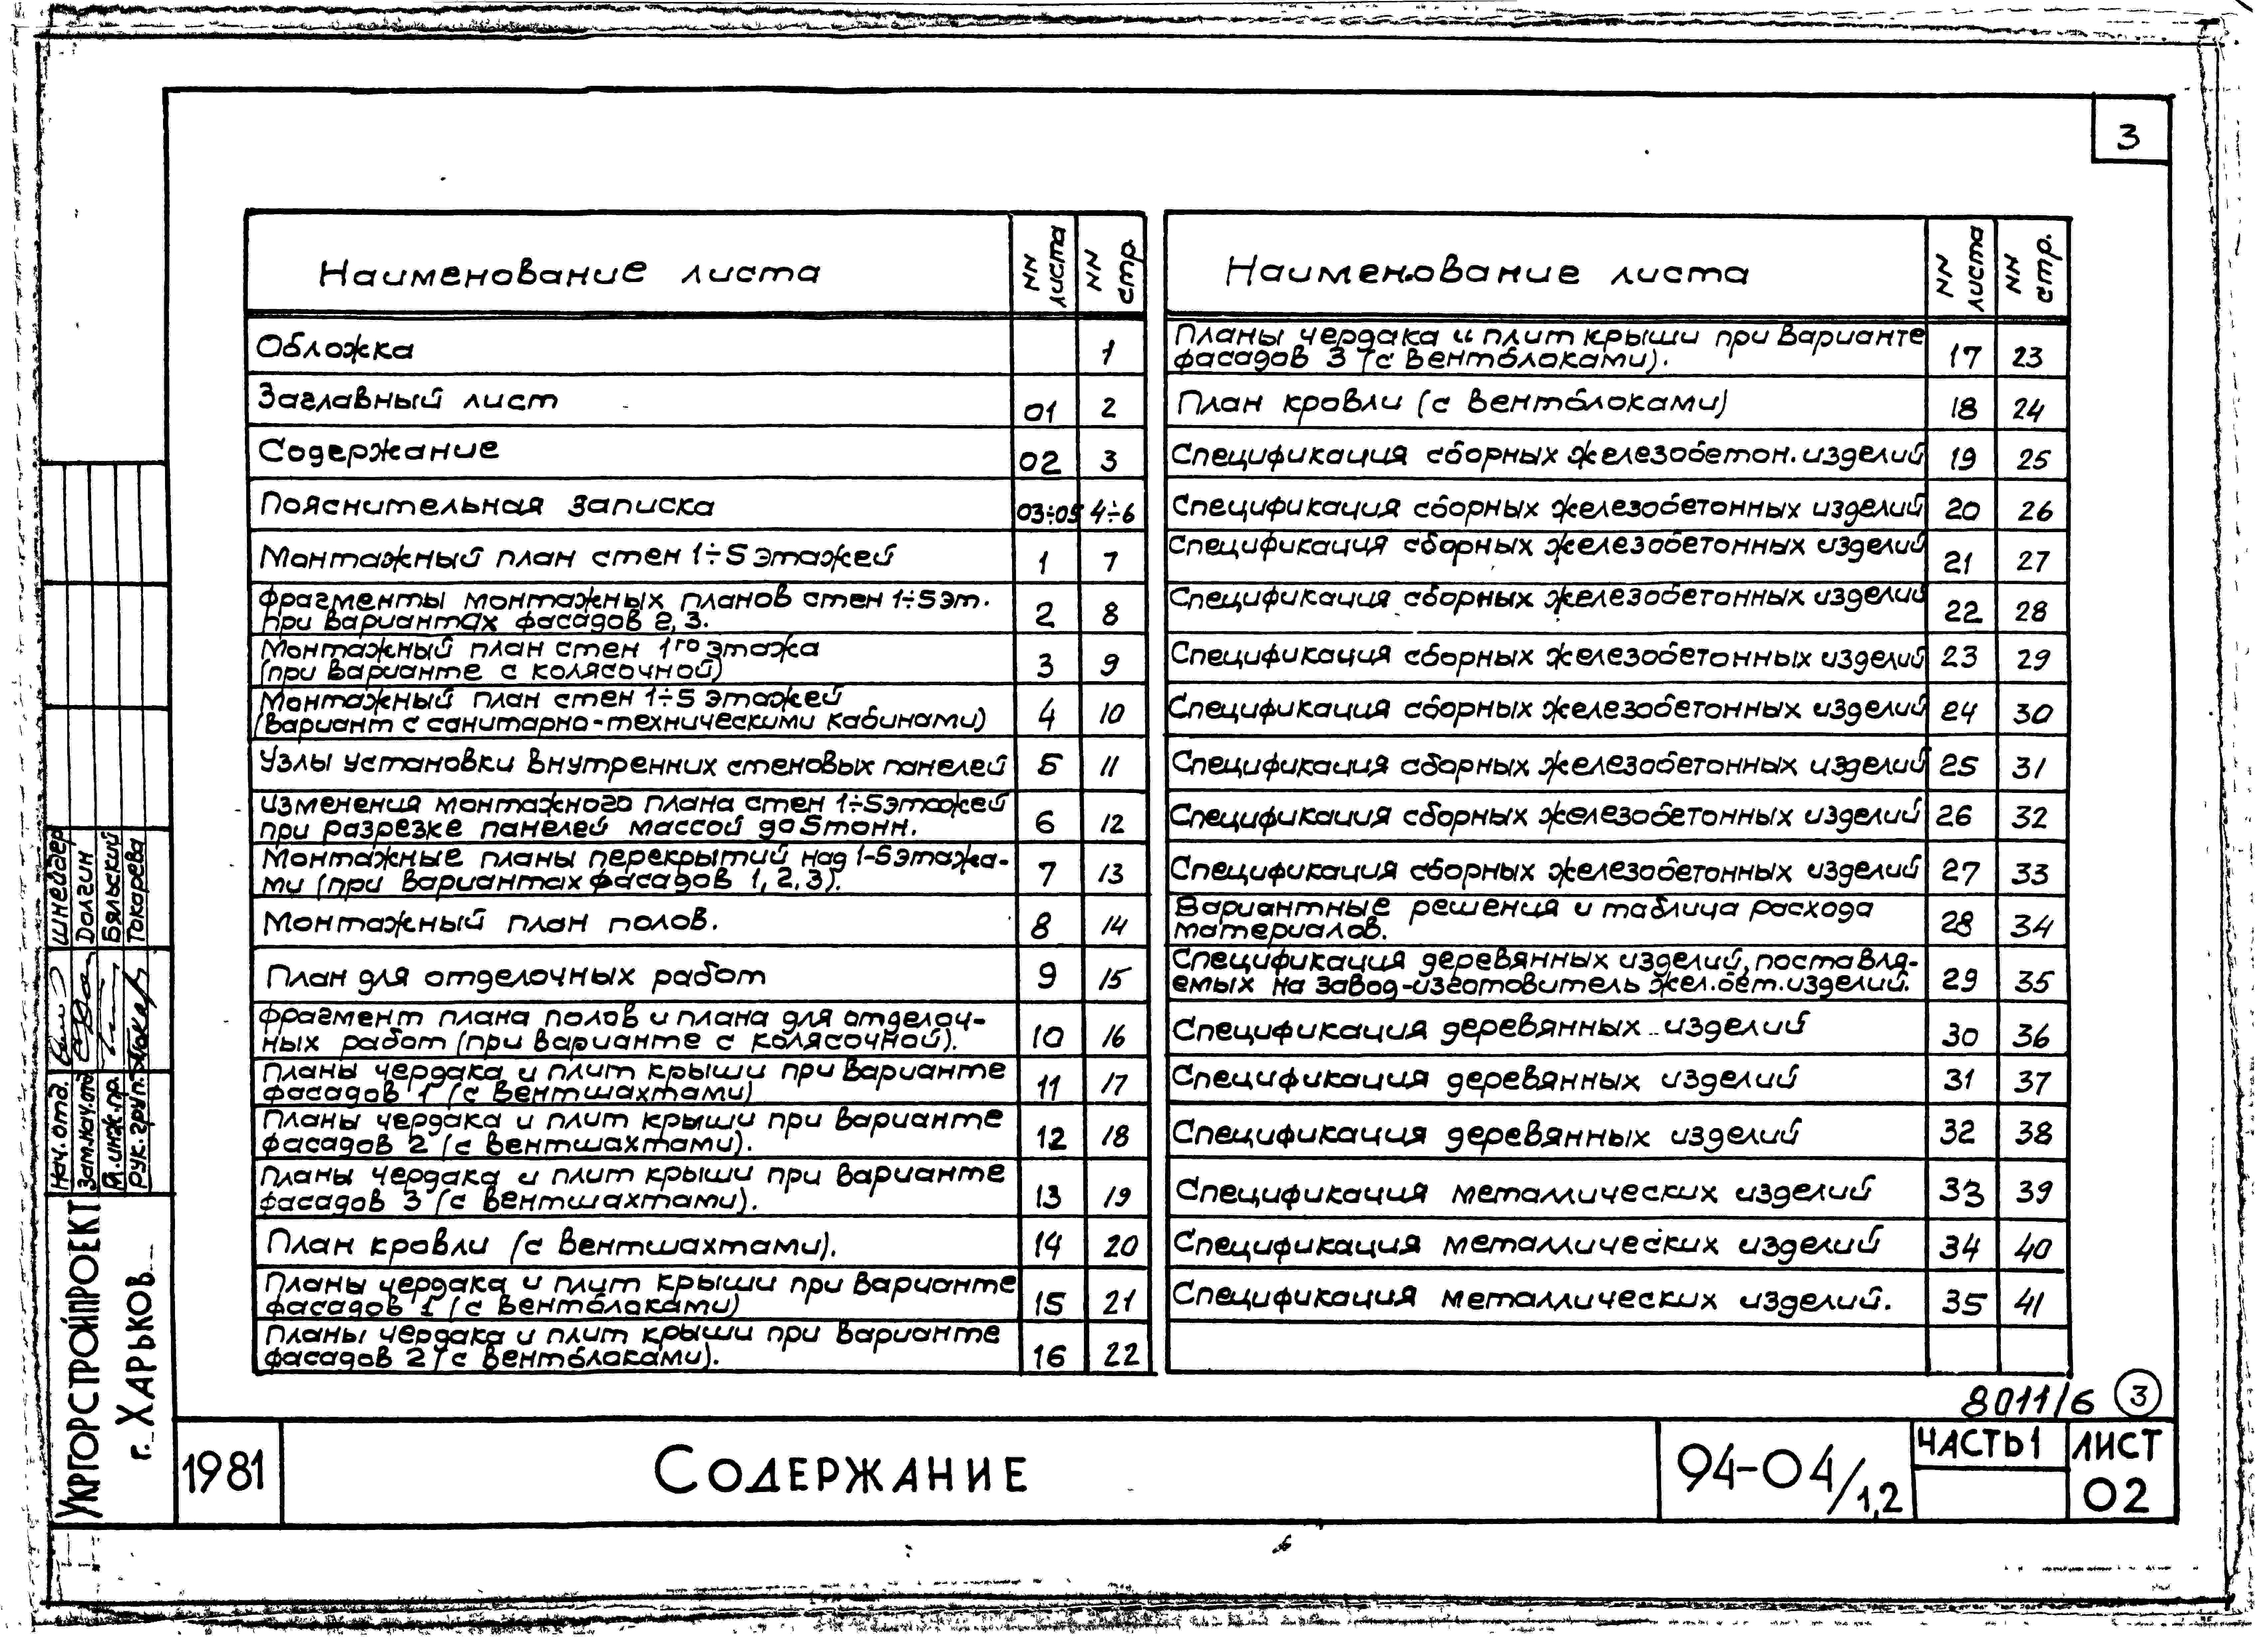 3
Наименование листа NN листа NN стр.
Обложка 1
Заглавный лист 01 2
Содержание 02 3
Пояснительная записка 03÷05 4÷6
Монтажный план стен 1÷5 этажей 1 7
Фрагменты монтажных планов стен 1÷5 эт.
при вариантах фасадов 2, 3. 2 8
Монтажный план стен 1го этажа
(при варианте с колясочной) 3 9
Монтажный план стен 1÷5 этажей
(вариант с санитарно-техническими кабинами) 4 10
Узлы установки внутренних стеновых панелей 5 11
Изменения монтажного плана стен 1÷5этажей
при разрезке панелей массой до 5тонн. 6 12
Монтажные планы перекрытий над 1-5этажа-
ми (при вариантах фасадов 1, 2, 3). 7 13
Монтажный план полов. 8 14
План для отделочных работ 9 15
Фрагмент плана полов и плана для отделоч-
ных работ (при варианте с колясочной). 10 16
Планы чердака и плит крыши при варианте
фасадов 1 (с вентшахтами) 11 17
Планы чердака и плит крыши при варианте
фасадов 2 (с вентшахтами). 12 18
Планы чердака и плит крыши при варианте
фасадов 3 (с вентшахтами). 13 19
План кровли (с вентшахтами). 14 20
Планы чердака и плит крыши при варианте
фасадов 1 (с вентблоками) 15 21
Планы чердака и плит крыши при варианте
фасадов 2 (с вентблоками). 16 22
Наименование листа NN листа NN стр.
Планы чердака и плит крыши при варианте
фасадов 3 (с вентблоками). 17 23
План кровли (с вентблоками) 18 24
Спецификация сборных железобетон. изделий 19 25
Спецификация сборных железобетонных изделий 20 26
Спецификация сборных железобетонных изделий 21 27
Спецификация сборных железобетонных изделий 22 28
Спецификация сборных железобетонных изделий 23 29
Спецификация сборных железобетонных изделий 24 30
Спецификация сборных железобетонных изделий 25 31
Спецификация сборных железобетонных изделий 26 32
Спецификация сборных железобетонных изделий 27 33
Вариантные решения и таблица расхода
материалов. 28 34
Спецификация деревянных изделий, поставля-
емых на завод-изготовитель жел.бет.изделий. 29 35
Спецификация деревянных изделий 30 36
Спецификация деревянных изделий 31 37
Спецификация деревянных изделий 32 38
Спецификация металлических изделий 33 39
Спецификация металлических изделий 34 40
Спецификация металлических изделий. 35 41
8011/6 3
Нач. отд. Шнейдер
Зам.нач.отд Долгин
Гл.инж.пр. Бяльский
Рук. груп. Токарева
Укргорстройпроект
г. Харьков
1981
Содержание
94-04/1,2
Часть 1
Лист
02